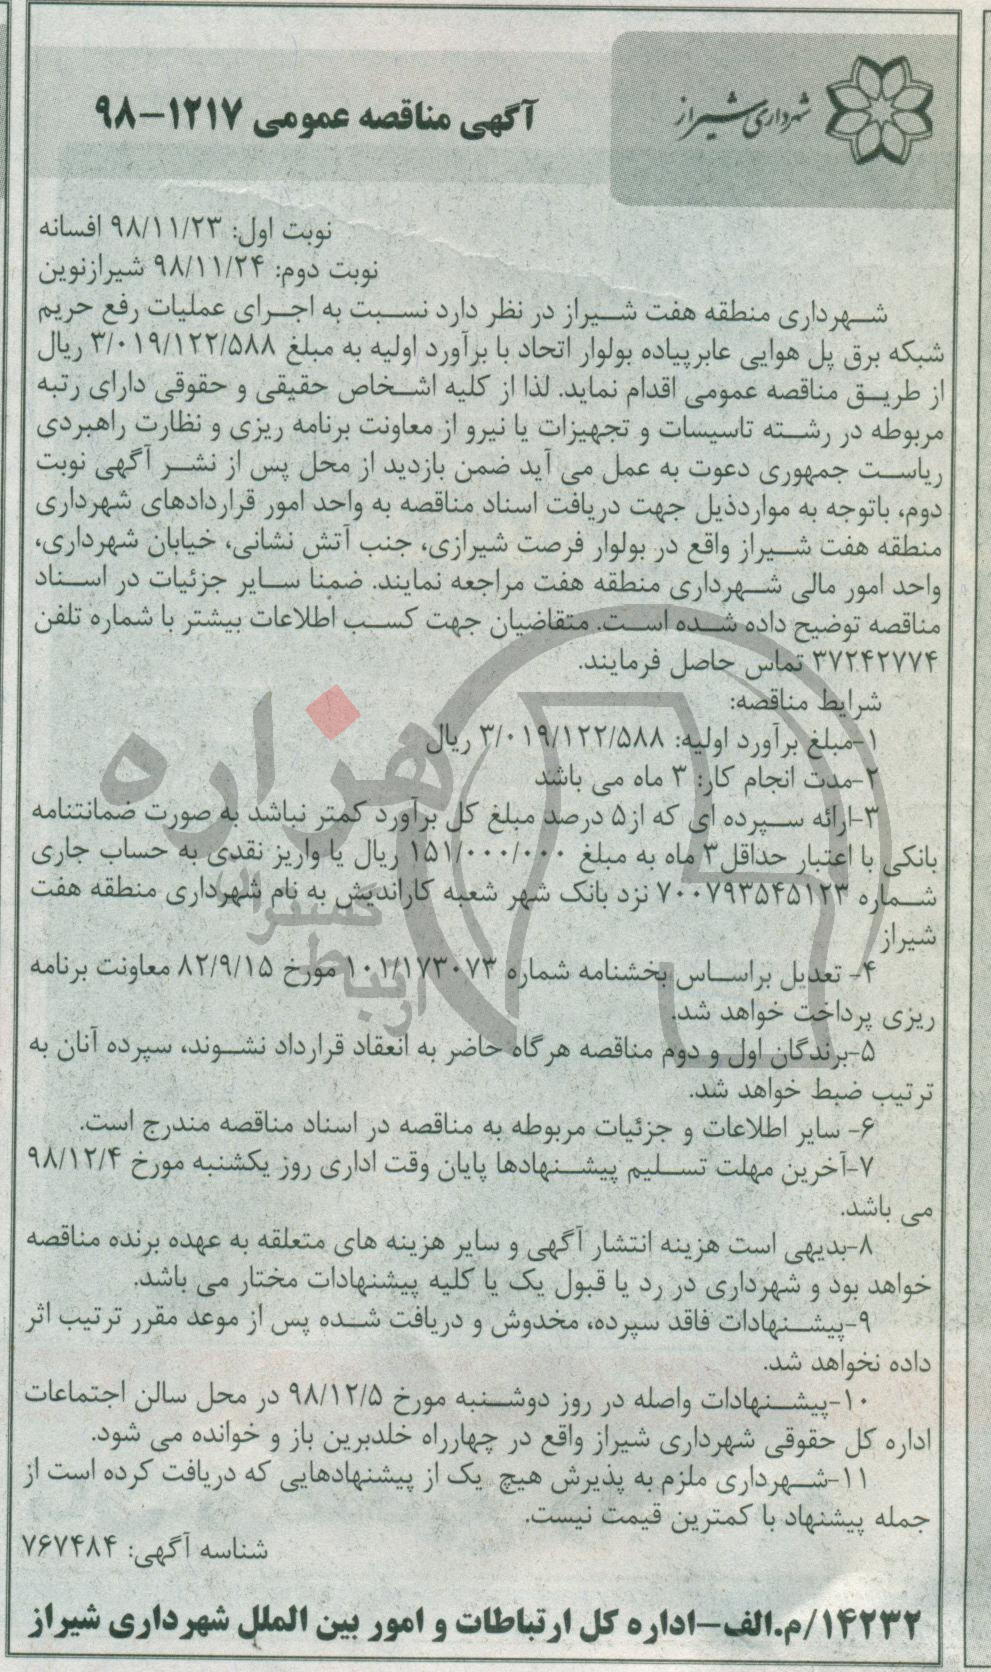 شهرداری شیراز
آگهی مناقصه عمومی ۱۲۱۷-۹۸
نوبت اول: ۹۸/۱۱/۲۳ افسانه
نوبت دوم: ۹۸/۱۱/۲۴ شیرازنوین
شهرداری منطقه هفت شیراز در نظر دارد نسبت به اجرای عملیات رفع حریم
شبکه برق پل هوایی عابرپیاده بولوار اتحاد با برآورد اولیه به مبلغ ۳/۰۱۹/۱۲۲/۵۸۸ ریال
از طریق مناقصه عمومی اقدام نماید. لذا از کلیه اشخاص حقیقی و حقوقی دارای رتبه
مربوطه در رشته تاسیسات و تجهیزات یا نیرو از معاونت برنامه ریزی و نظارت راهبردی
ریاست جمهوری دعوت به عمل می آید ضمن بازدید از محل پس از نشر آگهی نوبت
دوم، باتوجه به مواردذیل جهت دریافت اسناد مناقصه به واحد امور قراردادهای شهرداری
منطقه هفت شیراز واقع در بولوار فرصت شیرازی، جنب آتش نشانی، خیابان شهرداری،
واحد امور مالی شهرداری منطقه هفت مراجعه نمایند. ضمنا سایر جزئیات در اسناد
مناقصه توضیح داده شده است. متقاضیان جهت کسب اطلاعات بیشتر با شماره تلفن
۳۷۲۴۲۷۷۴ تماس حاصل فرمایند.
شرایط مناقصه:
۱-مبلغ برآورد اولیه: ۳/۰۱۹/۱۲۲/۵۸۸ ریال
۲-مدت انجام کار: ۳ ماه می باشد
۳-ارائه سپرده ای که از۵ درصد مبلغ کل برآورد کمتر نباشد به صورت ضمانتنامه
بانکی با اعتبار حداقل۳ ماه به مبلغ ۱۵۱/۰۰۰/۰۰۰ ریال یا واریز نقدی به حساب جاری
شماره ۷۰۰۷۹۳۵۴۵۱۲۳ نزد بانک شهر شعبه کاراندیش به نام شهرداری منطقه هفت
شیراز
۴- تعدیل براساس بخشنامه شماره ۱۰۱/۱۷۳۰۷۳ مورخ ۸۲/۹/۱۵ معاونت برنامه
ریزی پرداخت خواهد شد.
۵-برندگان اول و دوم مناقصه هرگاه حاضر به انعقاد قرارداد نشوند، سپرده آنان به
ترتیب ضبط خواهد شد.
۶- سایر اطلاعات و جزئیات مربوطه به مناقصه در اسناد مناقصه مندرج است.
۷-آخرین مهلت تسلیم پیشنهادها پایان وقت اداری روز یکشنبه مورخ ۹۸/۱۲/۴
می باشد.
۸-بدیهی است هزینه انتشار آگهی و سایر هزینه های متعلقه به عهده برنده مناقصه
خواهد بود و شهرداری در رد یا قبول یک یا کلیه پیشنهادات مختار می باشد.
۹-پیشنهادات فاقد سپرده، مخدوش و دریافت شده پس از موعد مقرر ترتیب اثر
داده نخواهد شد.
۱۰-پیشنهادات واصله در روز دوشنبه مورخ ۹۸/۱۲/۵ در محل سالن اجتماعات
اداره کل حقوقی شهرداری شیراز واقع در چهارراه خلدبرین باز و خوانده می شود.
۱۱-شهرداری ملزم به پذیرش هیچ یک از پیشنهادهایی که دریافت کرده است از
جمله پیشنهاد با کمترین قیمت نیست.
شناسه آگهی: ۷۶۷۴۸۴
۱۴۲۳۲/م.الف-اداره کل ارتباطات و امور بین الملل شهرداری شیراز
هزاره